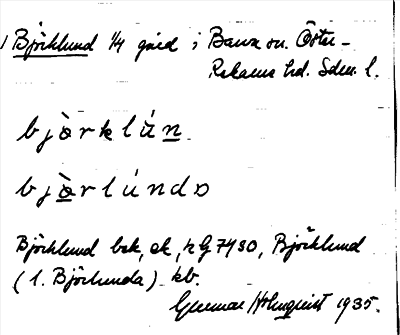 Björklund 1/4 gård i Barva sn. Öster-
Rekarne hd. Sdm. l.
bjòrklún
bjòrlúndo
Björklund bek, ek, h G 7430, Björklund
(l. Björlunda) kb.
Gunnar Holmquist 1935.